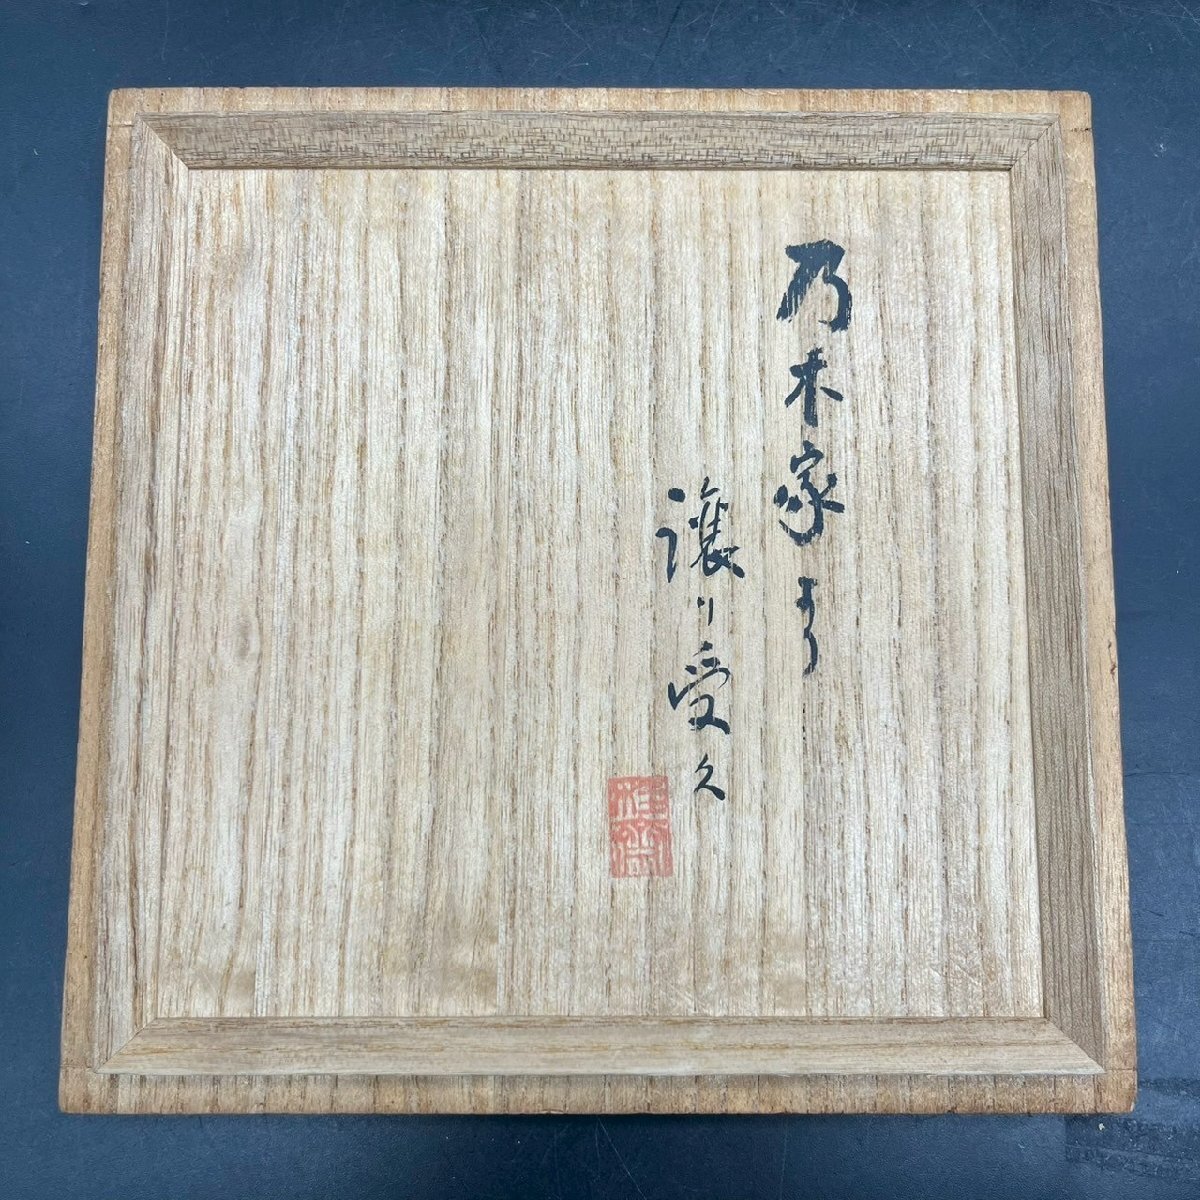 乃木家より
譲り受く